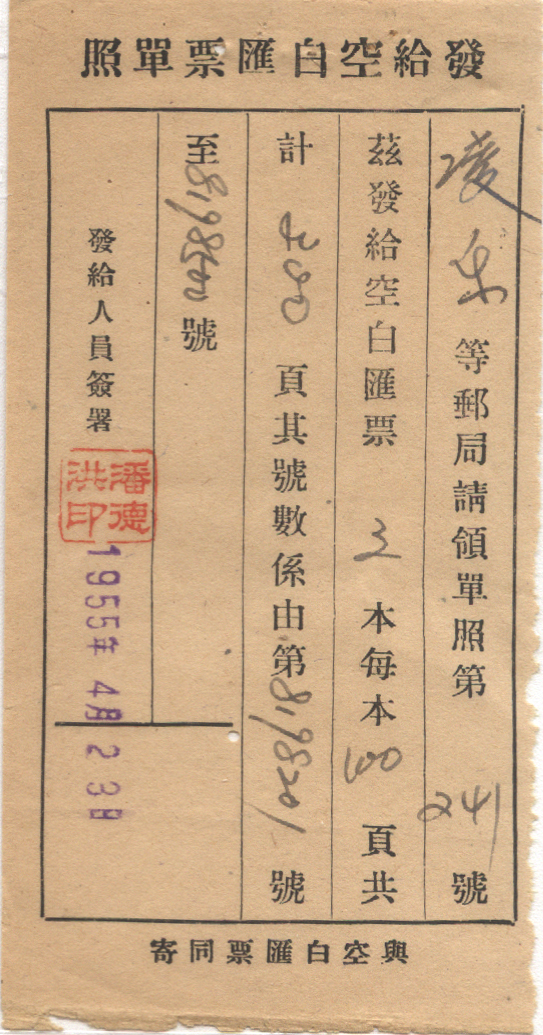 發給空白匯票單照
凌 等郵局請領單照第 241 號
茲發給空白匯票 3 本每本 100 頁共
計 頁其號數係由第 8198201 號
至 8198500 號
發給人員簽署
潘德
洪印
1955年 4月23日
與空白匯票同寄